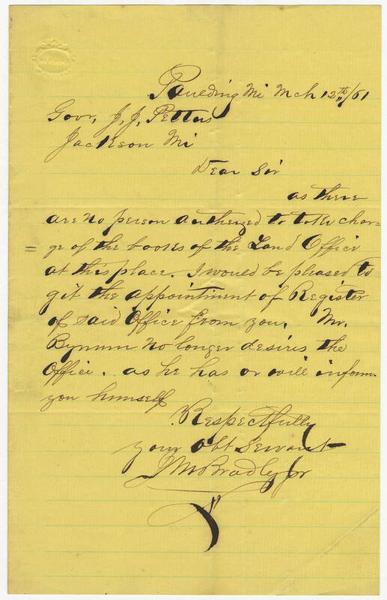 Paulding Mi Mch 12th/61
Govr, J, J, Pettus
Jackson Mi
Dear Sir
as there
are no person autherized to take char=
=ge of the books of the Land Office
at this place. I would be pleased to
get the appointment of Register
of said Office from you, Mr.
Bynum no longer desires the
Office. as he has or will inform
you himself
Respectfully
your obt servant
J M Bradley Jr